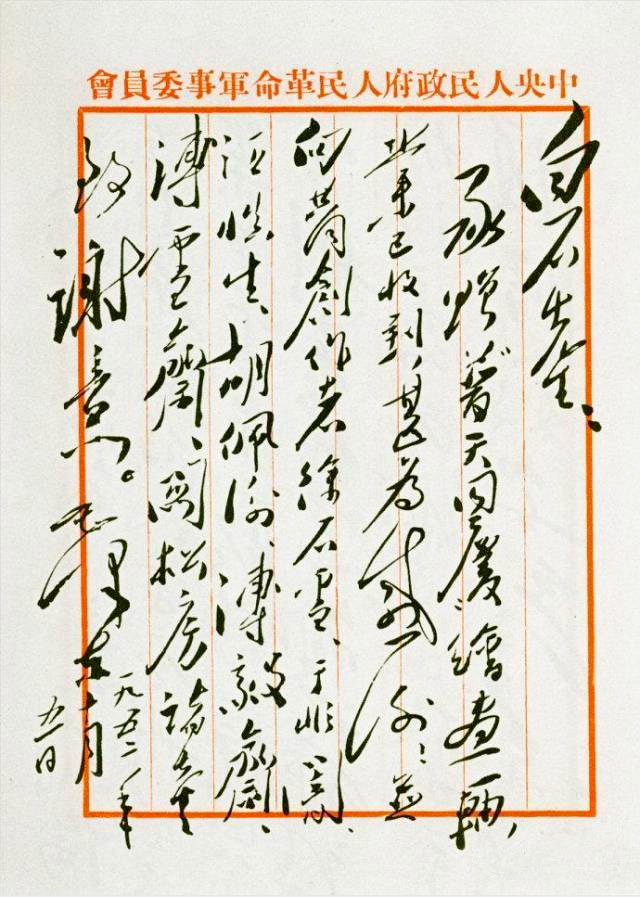 中央人民政府人民革命軍事委員會
白石先生：
承贈普天同慶繪畫一軸，
業已收到，甚為感謝；並
向共同創作者徐石雪、于非闇、
汪慎生、胡佩衡、溥毅齋、
溥雪齋、関松房諸先生
致謝意。毛澤東
一九五二年
十月五日